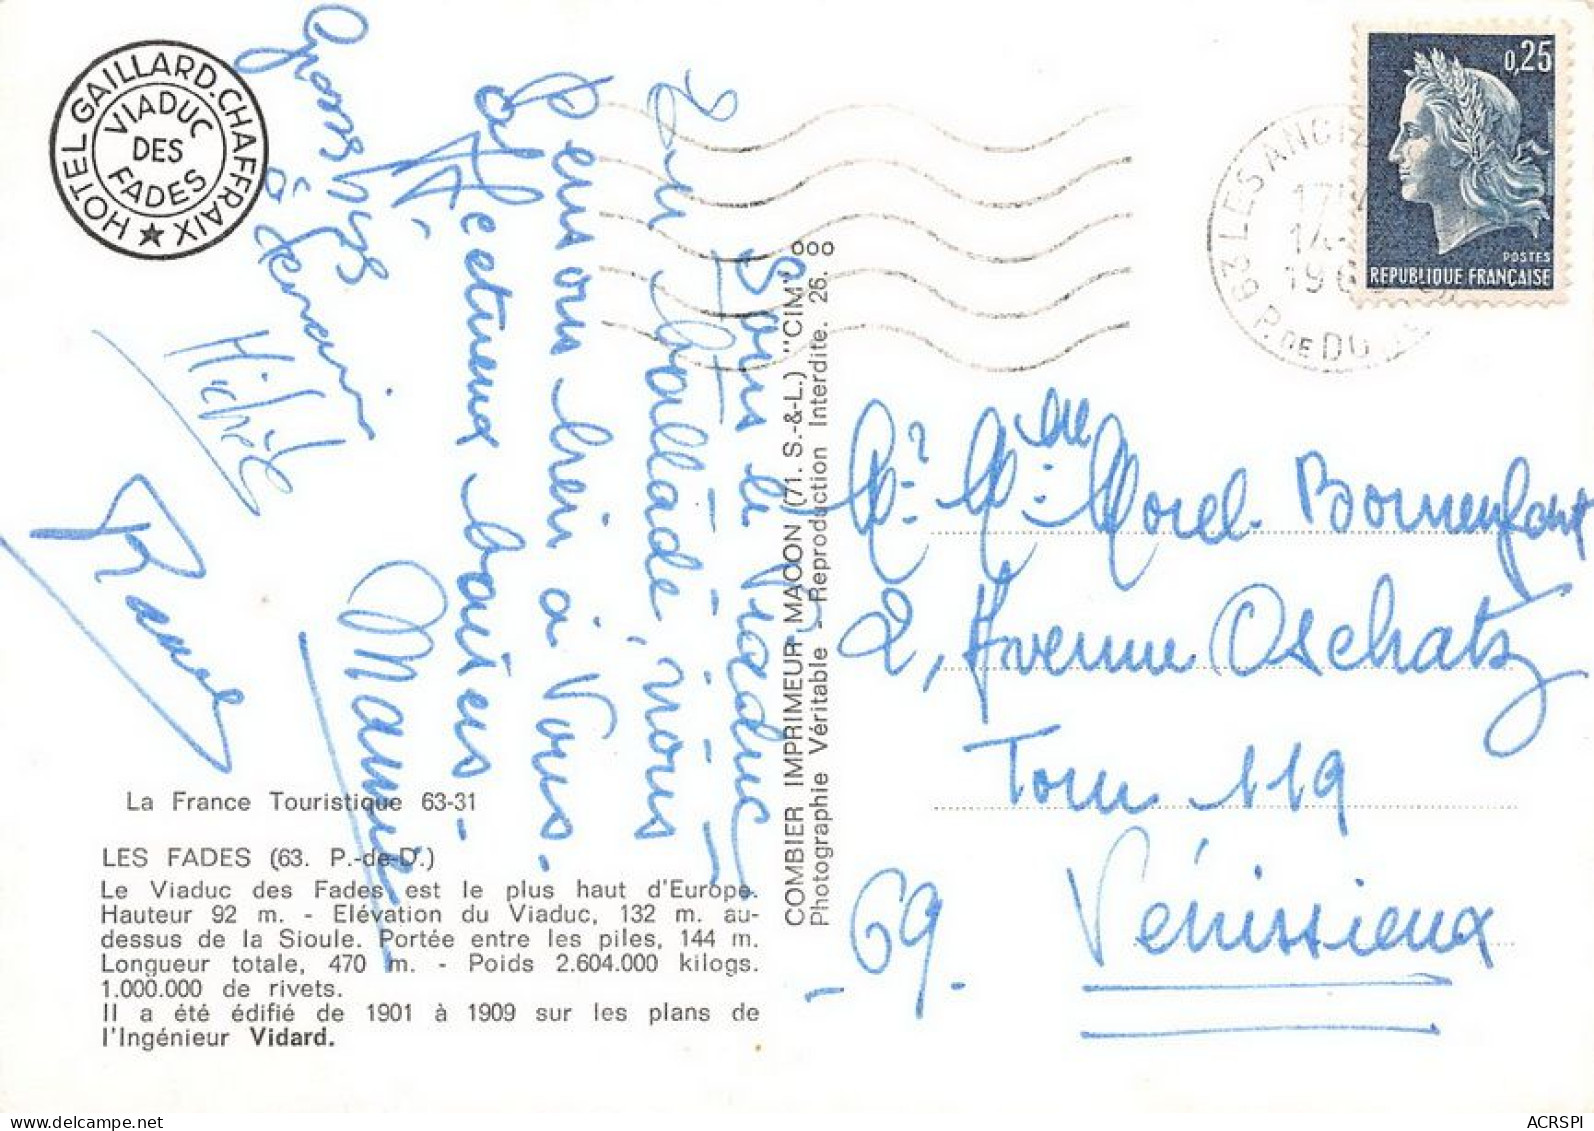 HOTEL GAILLARD-CHAFFRAIX
VIADUC
DES
FADES
Sous le Viaduc
en ballade, nous
pensons bien à Vous.
affectueux baisers
Mamie
Grosses bises
à Germain
Michèle
La France Touristique 63-31
LES FADES (63. P.-de-D.)
Le Viaduc des Fades est le plus haut d'Europe.
Hauteur 92 m. - Elévation du Viaduc, 132 m. au-
dessus de la Sioule. Portée entre les piles, 144 m.
Longueur totale, 470 m. - Poids 2.604.000 kilogs.
1.000.000 de rivets.
Il a été édifié de 1901 à 1909 sur les plans de
l'Ingénieur Vidard.
COMBIER IMPRIMEUR MACON (71. S.-&-L.) "CIM"
Photographie Véritable - Reproduction Interdite. 26. 000
0,25
POSTES
REPUBLIQUE FRANÇAISE
63 LES ANC
P. DE DU
M. Mme Morel Bonnenfant
2, Avenue Oschatz
Tour 119
- 69 - Vénissieux
ACRSPI